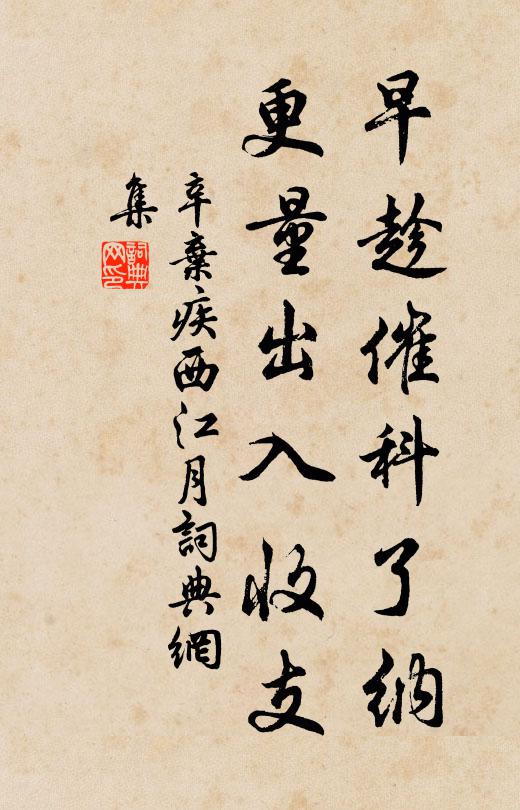 早趁催科了納
更量出入收支
辛棄疾西江月詞典網
集
詞典網印